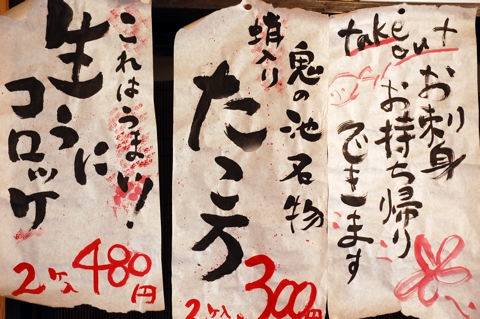 take
out
お刺身
お持ち帰り
できます
鬼の池名物
蛸入り
たこ
2ヶ入 300円
これはうまい!
生うに
コロッケ
2ヶ入 480円